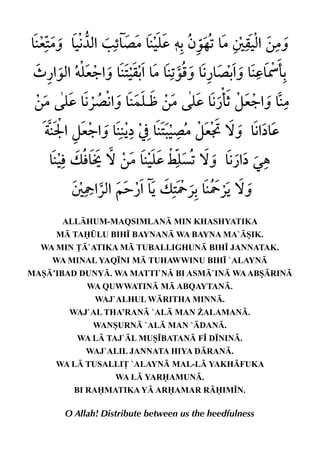 وَمِنَ الْيَقِيْنِ مَا تُهَوِّنُ بِهِ عَلَيْنَا مَصَآئِبَ الدُّنْيَا وَمَتِّعْنَا
بِأَسْمَاعِنَا وَاَبْصَارِنَا وَقُوَّتِنَا مَا اَبْقَيْتَنَا وَاجْعَلْهُ الوَارِثَ
مِنَّا وَاجْعَلْ ثَأْرَنَا عَلٰى مَنْ ظَلَمَنَا وَانْصُرْنَا عَلٰى مَنْ
عَادَانَا وَلَا تَجْعَلْ مُصِيْبَتَنَا فِيْ دِيْنِنَا وَاجْعَلِ الْجَنَّةَ
هِيَ دَارَنَا وَلَا تُسَلِّطْ عَلَيْنَا مَنْ لَّا يَخَافُكَ فِيْنَا
وَلَا يَرْحَمُنَا بِرَحْمَتِكَ يَآ اَرْحَمَ الرَّاحِمِيْنَ
ALLĀHUM-MAQSIMLANĀ MIN KHASHYATIKA
MĀ TAḤŪLU BIHĪ BAYNANĀ WA BAYNA MA`ĀṢIK.
WA MIN ṬĀ`ATIKA MĀ TUBALLIGHUNĀ BIHĪ JANNATAK.
WA MINAL YAQĪNI MĀ TUHAWWINU BIHĪ `ALAYNĀ
MAṢĀ’IBAD DUNYĀ. WA MATTI`NĀ BI ASMĀ`INĀ WA ABṢĀRINĀ
WA QUWWATINĀ MĀ ABQAYTANĀ.
WAJ`ALHUL WĀRITHA MINNĀ.
WAJ`AL THA’RANĀ `ALĀ MAN ŻALAMANĀ.
WANṢURNĀ `ALĀ MAN `ĀDANĀ.
WA LĀ TAJ`ĀL MUṢĪBATANĀ FĪ DĪNINĀ.
WAJ`ALIL JANNATA HIYA DĀRANĀ.
WA LĀ TUSALLIṬ `ALAYNĀ MAL-LĀ YAKHĀFUKA
WA LĀ YARḤAMUNĀ.
BI RAḤMATIKA YĀ ARḤAMAR RĀḤIMĪN.
O Allah! Distribute between us the heedfulness